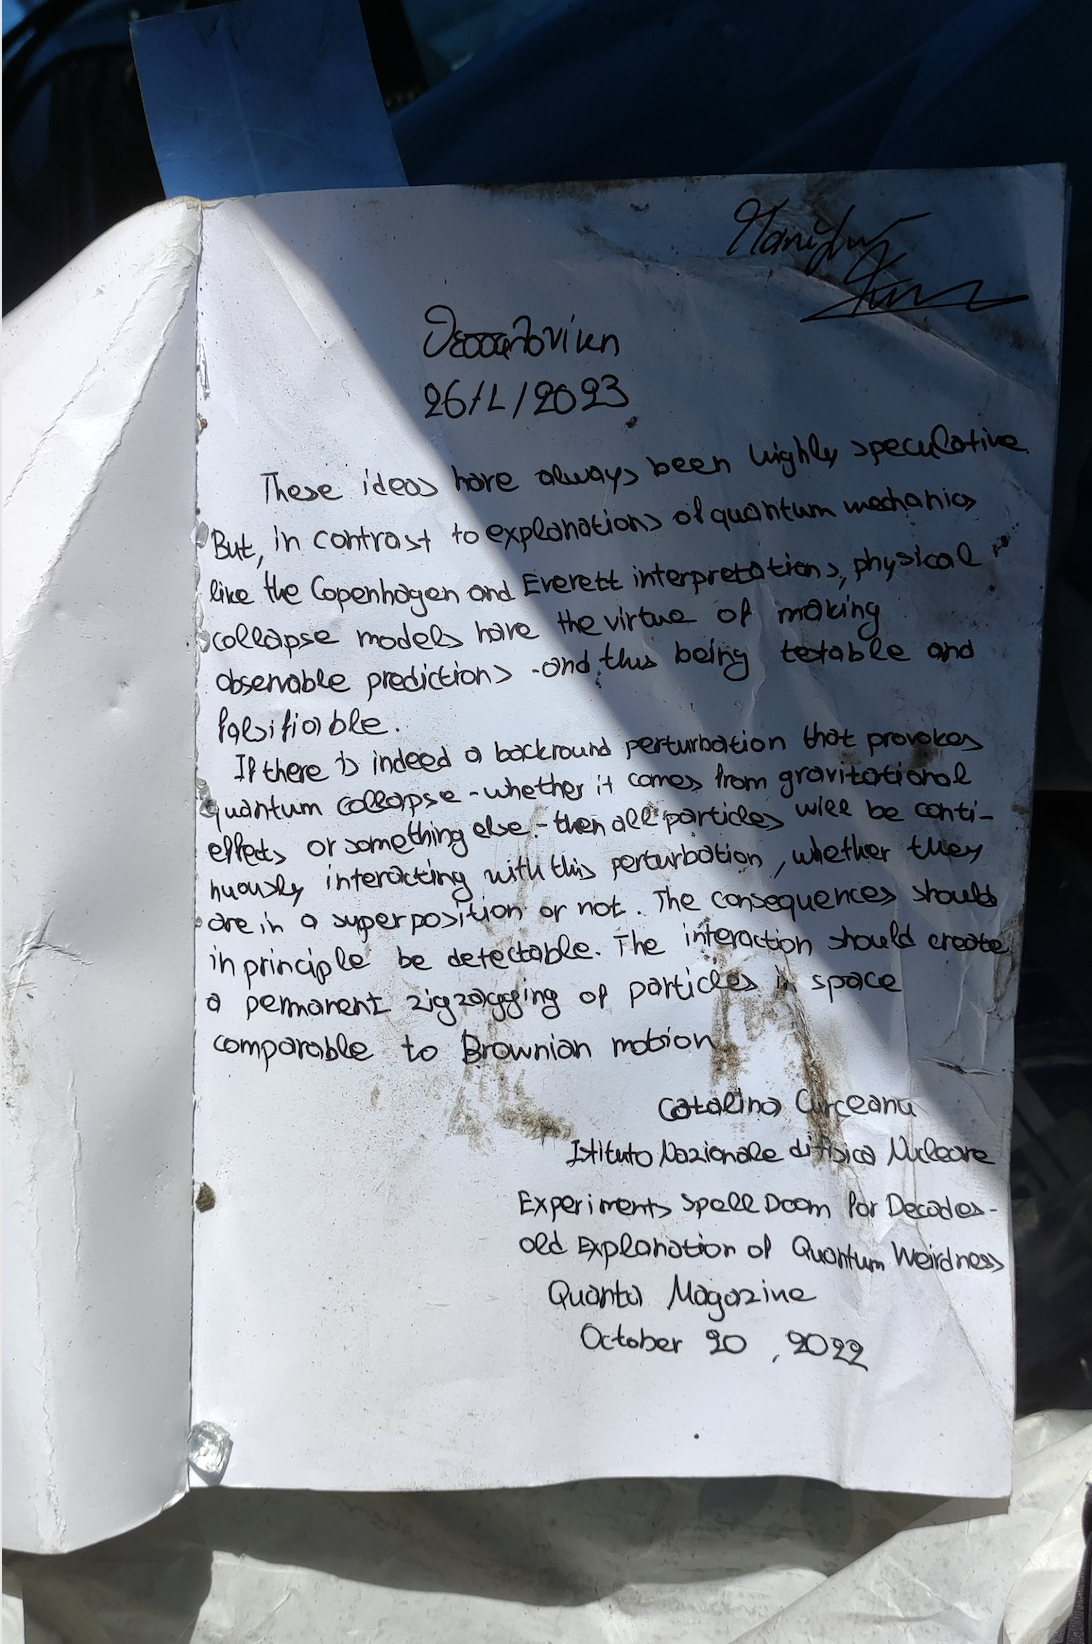 Θεσσαλονίκη
26/1/2023
These ideas have always been highly speculative.
But, in contrast to explanations of quantum mechanics
like the Copenhagen and Everett interpretations, physical
collapse models have the virtue of making
observable predictions -and thus being testable and
falsifiable.
If there is indeed a backround perturbation that provokes
quantum collapse - whether it comes from gravitational
effects or something else - then all particles will be conti-
nuously interacting with this perturbation, whether they
are in a superposition or not. The consequences should
in principle be detectable. The interaction should create
a permanent zigzagging of particles in space
comparable to Brownian motion
Catalina Curceanu
Istituto Nazionale di Fisica Nucleare
Experiments Spell Doom for Decades-
old Explanation of Quantum Weirdness
Quanta Magazine
October 20, 2022